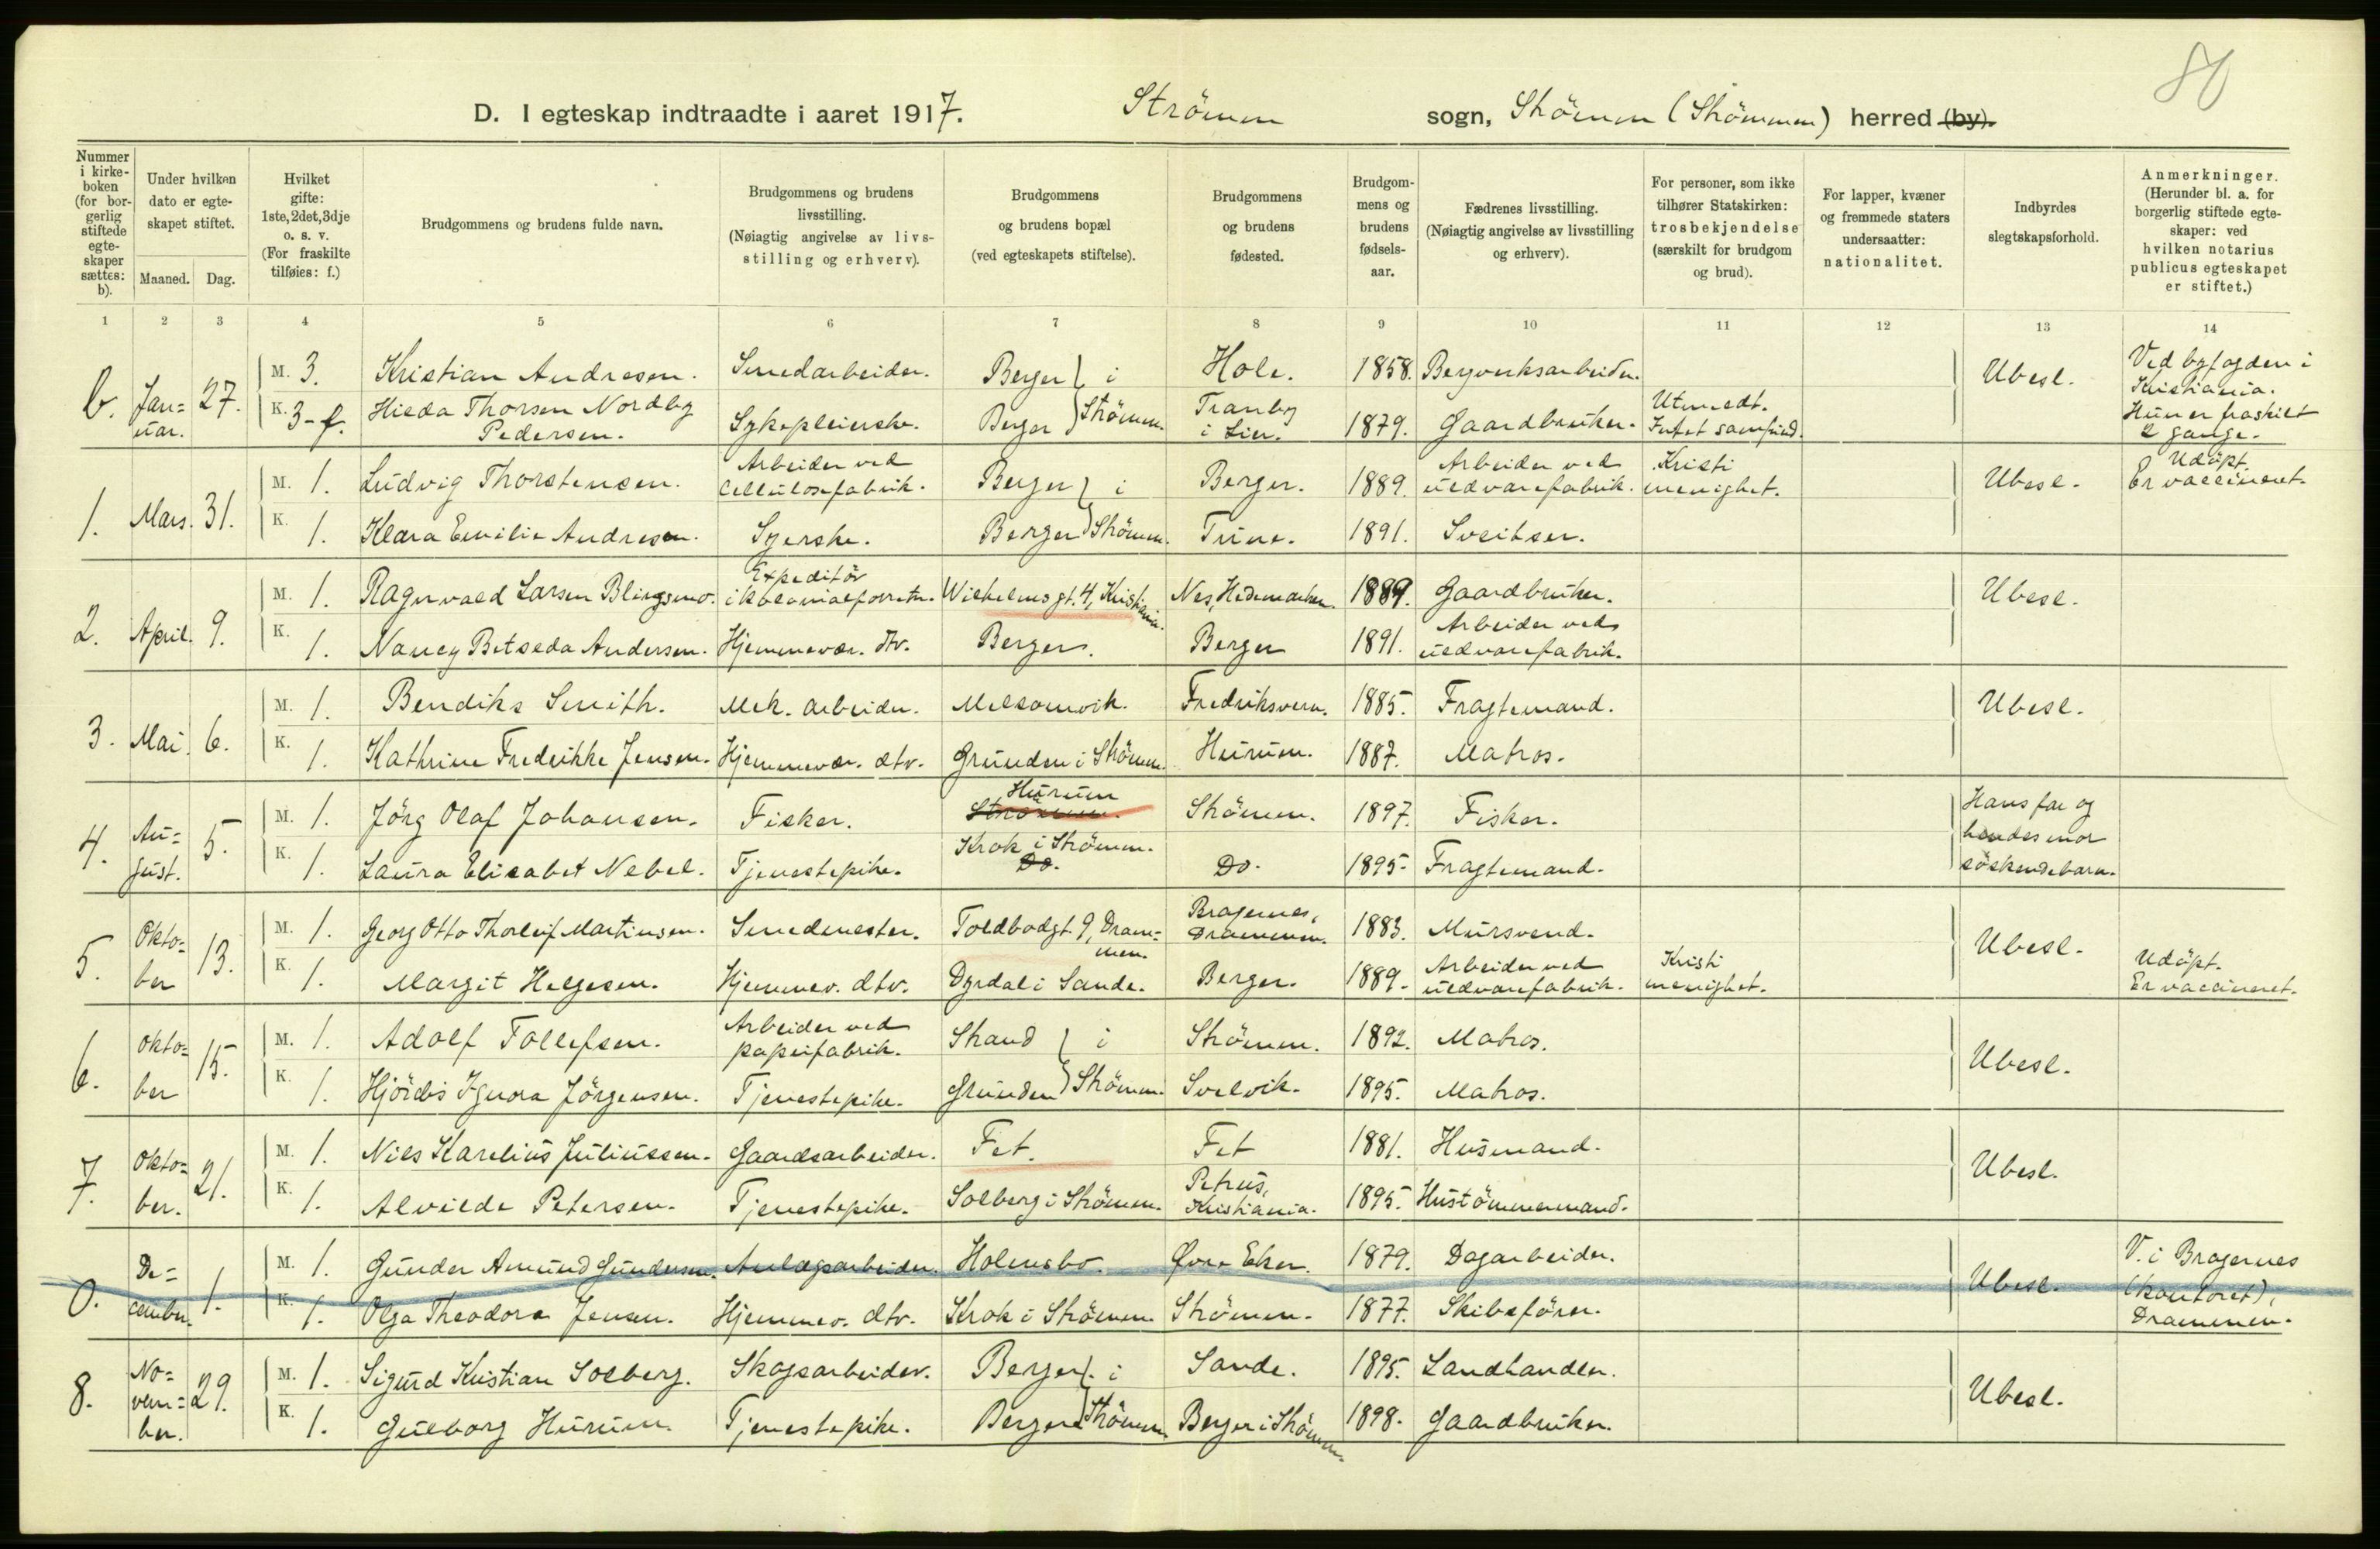 80
D. I egteskap indtraadte i aaret 1917. Strömm sogn, Strömm (Strömmen) herred (by).
Nummer i kirkeboken (for borgerlig stiftede egteskaper sættes: b).
Under hvilken dato er egteskapet stiftet.
Maaned. Dag.
Hvilket gifte: 1ste, 2det, 3dje o. s. v. (For fraskilte tilføies: f.)
Brudgommens og brudens fulde navn.
Brudgommens og brudens livsstilling. (Nøiagtig angivelse av livsstilling og erhverv).
Brudgommens og brudens bopæl (ved egteskapets stiftelse).
Brudgommens og brudens fødested.
Brudgommens og brudens fødselsaar.
Fædrenes livsstilling. (Nøiagtig angivelse av livsstilling og erhverv).
For personer, som ikke tilhører Statskirken: trosbekjendelse (særskilt for brudgom og brud).
For lapper, kvæner og fremmede staters undersaatter: nationalitet.
Indbyrdes slegtskapsforhold.
Anmerkninger. (Herunder bl. a. for borgerlig stiftede egteskaper: ved hvilken notarius publicus egteskapet er stiftet.)
1 2 3 4 5 6 7 8 9 10 11 12 13 14
b. Januar. 27. M. 3. Kristian Andresen. Smedarbeider. Berger } i Strömm. Hole. 1858. Bergverksarbeider. Ubesl. Ved byfogden i Kristiania.
K. 3-f. Hilda Thorsen Nordby Pedersen. Sykepleierske. Berger Tranby i Lier. 1879. Gaardbruker. Utmeldt. Intet samfund. Hun er fraskilt 2 gange.
1. Mars. 31. M. 1. Ludvig Thorstensen. Arbeider ved cellulosefabrik. Berger } i Strömm. Berger. 1889. Arbeider ved uldvarefabrik. Kristi menighet. Ubesl. Udöpt. Er vaccineret.
K. 1. Klara Emilie Andresen. Syerske. Berger Tune. 1891. Sveitser.
2. April. 9. M. 1. Ragnvald Larsen Blingsmo. Expeditör i kolonialforretn. Wilhelmsgt. 4, Kristiania. Nes, Hedemarken. 1889. Gaardbruker. Ubesl.
K. 1. Nancy Betseda Andersen. Hjemmevær. dtr. Berger. Berger 1891. Arbeider ved uldvarefabrik.
3. Mai. 6. M. 1. Bendiks Smith. Mek. arbeider. Melsomvik. Fredriksvern. 1885. Fragtemand. Ubesl.
K. 1. Kathrine Fredrikke Jensen. Hjemmevær. dtr. Grunden i Strömm. Hurum. 1887. Matros.
4. August. 5. M. 1. Jörg Olaf Johansen. Fisker. Hurum Strömm. Strömm. 1897. Fisker. Hans far og hendes mor söskendebarn.
K. 1. Laura Elisabet Nebel. Tjenestepike. Krok i Strömm. Do. Do. 1895. Fragtemand.
5. Oktober 13. M. 1. Georg Otto Thorleif Martinsen. Smedmester. Toldbodgt. 9, Drammen. Bragernes, Drammen. 1883. Mursvend. Ubesl.
K. 1. Margit Helgesen. Hjemmev. dtr. Dyrdal i Sande. Berger. 1889. Arbeider ved uldvarefabrik. Kristi menighet. Udöpt. Er vaccineret.
6. Oktober 15. M. 1. Adolf Tollefsen. Arbeider ved papirfabrik. Strand } i Strömm. Strömm. 1892. Matros. Ubesl.
K. 1. Hjördis Ignora Jörgensen. Tjenestepike. Grunden Svelvik. 1895. Matros.
7. Oktober. 21. M. 1. Nils Karelius Juliussen. Gaardsarbeider. Fet. Fet 1881. Husmand. Ubesl.
K. 1. Alvilde Petersen. Tjenestepike. Solberg i Strömm. Petrus, Kristiania. 1895. Hustömmermand.
0. December. 1. M. 1. Gunder Amund Gundersen. Anlægsarbeider. Holmsbo. Øvre Eker. 1879. Dagarbeider. Ubesl. V. i Bragernes (kontoret), Drammen.
K. 1. Olga Theodora Jensen. Hjemmev. dtr. Krok i Strömm Strömm. 1877. Skibsförer.
8. November. 29. M. 1. Sigurd Kristian Solberg. Skogsarbeider. Berger } i Strömm. Sande. 1895. Landhandler. Ubesl.
K. 1. Gulborg Hurum. Tjenestepike. Berger Berger i Strömm. 1898. Gaardbruker.